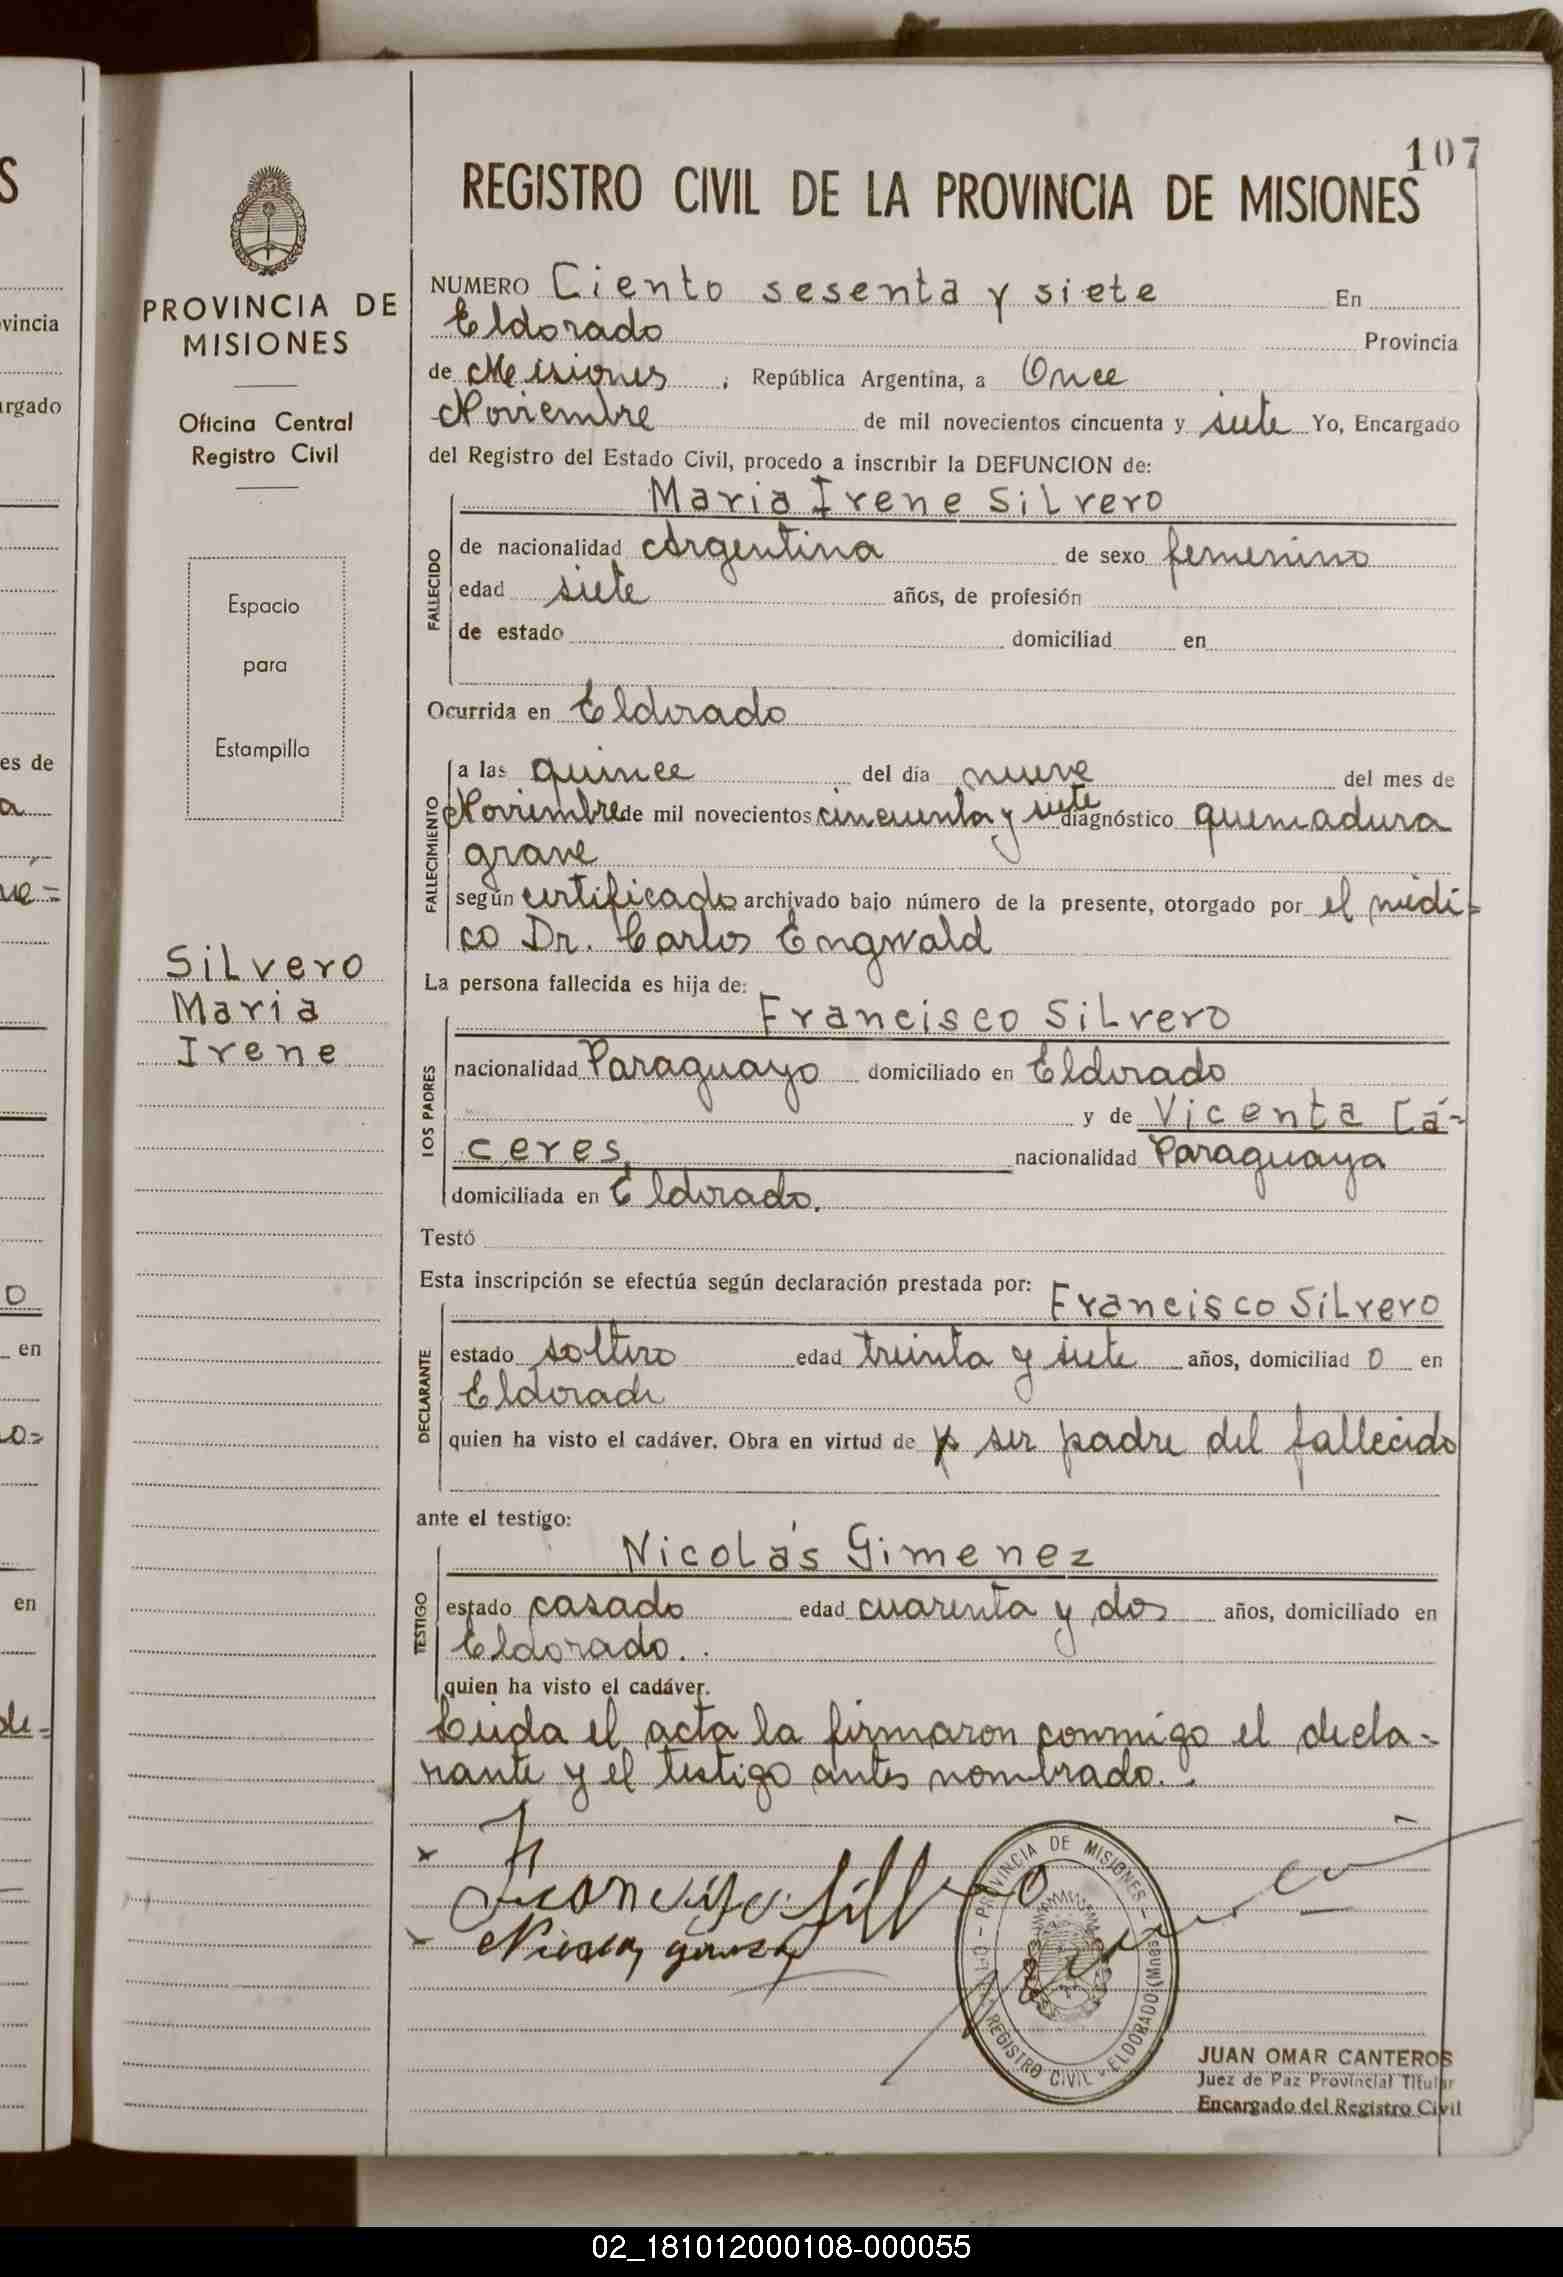 107
REGISTRO CIVIL DE LA PROVINCIA DE MISIONES
PROVINCIA DE
MISIONES
Oficina Central
Registro Civil
Espacio
para
Estampilla
Silvero
Maria
Irene
NUMERO Ciento sesenta y siete En
Eldorado Provincia
de Misiones, República Argentina, a Once
Noviembre de mil novecientos cincuenta y siete Yo, Encargado
del Registro del Estado Civil, procedo a inscribir la DEFUNCION de:
Maria Irene Silvero
FALLECIDO
de nacionalidad Argentina de sexo femenino
edad siete años, de profesión
de estado domiciliad en
Ocurrida en Eldorado
FALLECIMIENTO
a las quince del día nueve del mes de
Noviembre de mil novecientos cincuenta y siete diagnóstico quemadura
grave
según certificado archivado bajo número de la presente, otorgado por el médi=
co Dr. Carlos Engwald
La persona fallecida es hija de:
Francisco Silvero
LOS PADRES
nacionalidad Paraguayo domiciliado en Eldorado
y de Vicenta Cá-
ceres, nacionalidad Paraguaya
domiciliada en Eldorado.
Testó
Esta inscripción se efectúa según declaración prestada por:
Francisco Silvero
DECLARANTE
estado soltero edad treinta y siete años, domiciliad o en
Eldorado
quien ha visto el cadáver. Obra en virtud de ser padre del fallecido
ante el testigo:
Nicolás Gimenez
TESTIGO
estado casado edad cuarenta y dos años, domiciliado en
Eldorado.
quien ha visto el cadáver.
Leida el acta la firmaron conmigo el decla-
rante y el testigo antes nombrado.
PROVINCIA DE MISIONES
REGISTRO CIVIL - ELDORADO (Mnes)
JUAN OMAR CANTEROS
Juez de Paz Provincial Titular
Encargado del Registro Civil
02_181012000108-000055